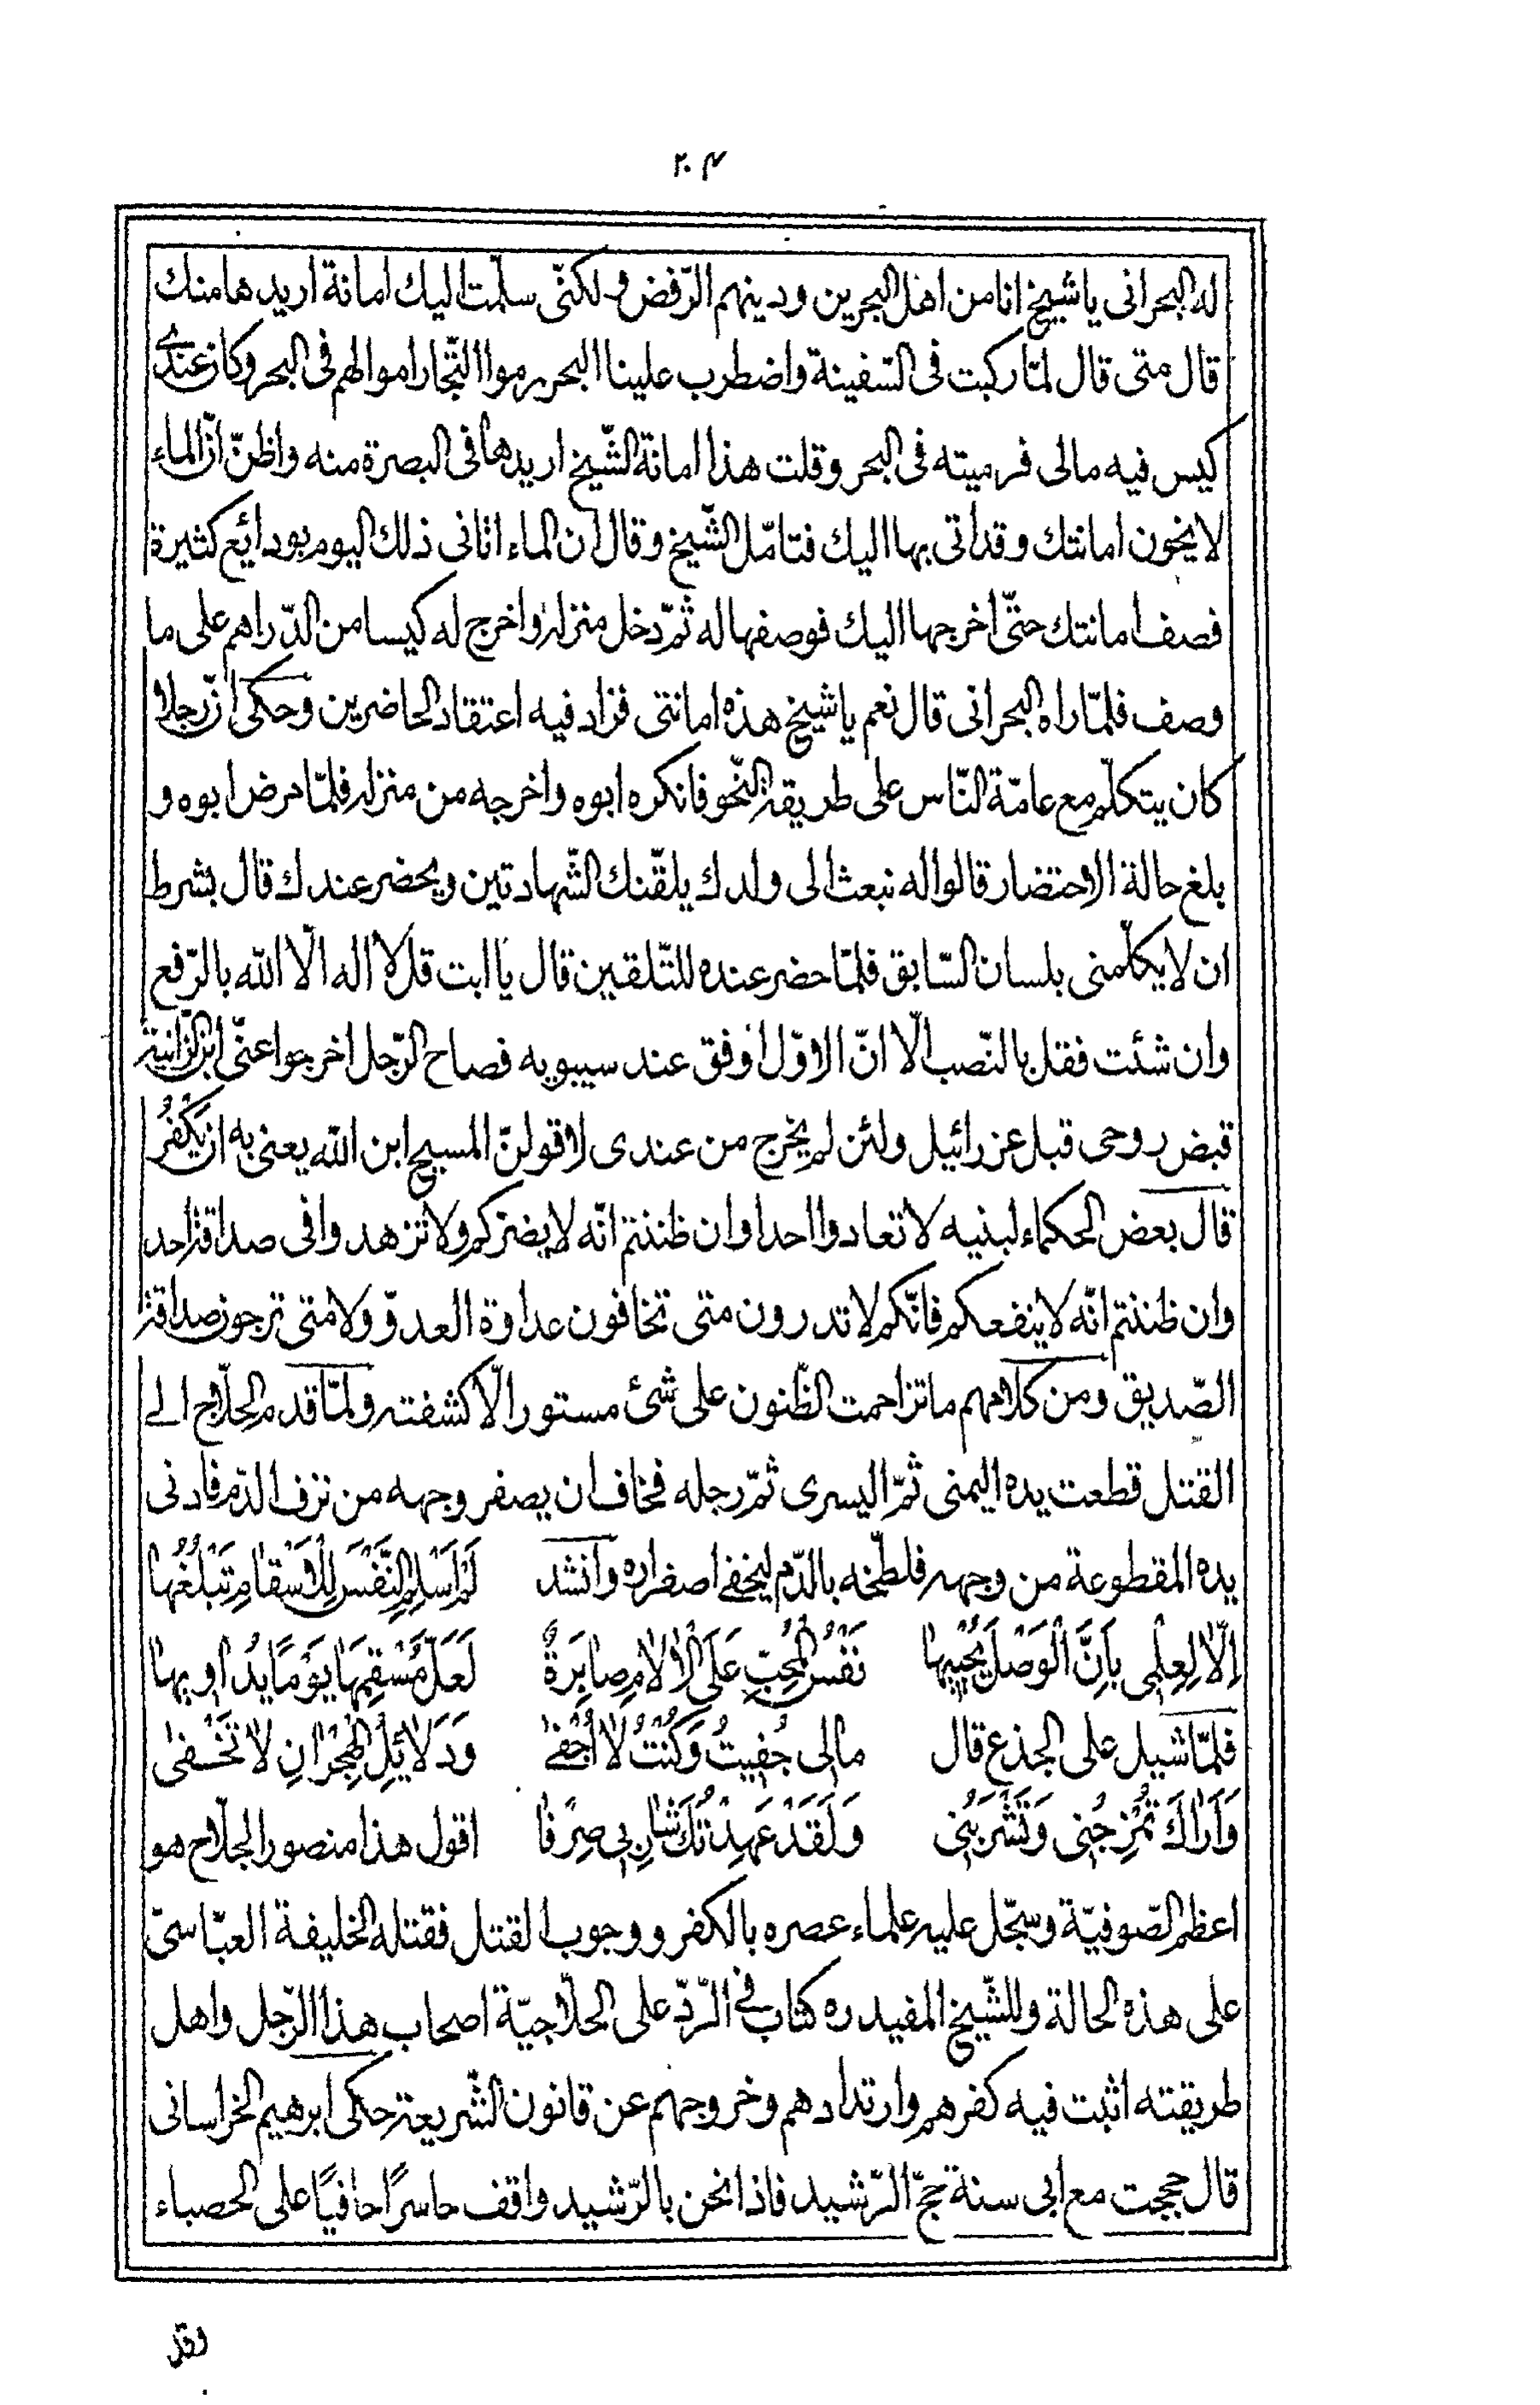 ٢٠٤
له البحرانى يا شيخ انا من اهل البحرين ودينهم الرّفض ولكنّى سلّمت اليك امانة اريدها منك
قال متى قال لمّا ركبت فى السّفينة واضطرب علينا البحر رموا التّجار اموالهم فى البحر وكان عندى
كيس فيه مالى فرميته فى البحر وقلت هذا امانة الشّيخ اريدها فى البصرة منه واظنّ انّ الماء
لا يخون امانتك وقد اتى بها اليك فتامّل الشّيخ وقال ان الماء اتانى ذلك اليوم بودائع كثيرة
فصف امانتك حتّى اخرجها اليك فوصفها له ثمّ دخل منزله واخرج له كيسا من الدّراهم على ما
وصف فلمّا راه البحرانى قال نعم يا شيخ هذه امانتى فزاد فيه اعتقاد الحاضرين وحكى انّ رجلا
كان يتكلّم مع عامّة النّاس على طريقة النّحو فانكره ابوه واخرجه من منزله فلمّا مرض ابوه و
بلغ حالة الاحتضار قالوا له نبعث الى ولدك يلقّنك الشّهادتين ويحضر عندك قال بشرط
ان لا يكلّمنى بلسان السّابق فلمّا حضر عنده للتّلقين قال يا ابت قل لا اله الّا الله بالرّفع
وان شئت فقل بالنّصب الّا انّ الاوّل اوفق عند سيبويه فصاح الرّجل اخرجوا عنّى ابن الزّانية
قبض روحى قبل عزرائيل ولئن لم يخرج من عندى لاقولنّ المسيح ابن الله يعنى به ان يَكْفُرُ
قال بعض الحكماء لبنيه لا تعادوا احدا وان ظننتم انّه لا يضرّكم ولا تزهدوا فى صداقة احد
وان ظننتم انّه لا ينفعكم فانّكم لا تدرون متى تخافون عداوة العدوّ ولا متى ترجون صداقة
الصّديق ومن كلامهم ما تزاحمت الظّنون على شئ مستور الّا كشفته ولمّا قدم الحلّاج الى
القتل قطعت يده اليمنى ثمّ اليسرى ثمّ رجله فخاف ان يصفر وجهه من نزف الدّم فادنى
يده المقطوعة من وجهه فلطّخه بالدّم ليخفى اصفراره وانشد لَمْ اَسْلِمِ النَّفْسَ لِلْاَسْقامِ تَبْلُغُها
اِلّا لِعِلْمِى بِاَنَّ الْوَصْلَ يُحْيِيها نَفْسُ الْمُحِبِّ عَلَى الْآلامِ صابِرَةٌ لَعَلَّ مُسْقِمَها يَوْمًا يُداوِيها
فلمّا شيل على الجذع قال مالِى جُفِيتُ وَكُنْتُ لا اُجْفى وَدَلائِلِ الْهِجْرانِ لا تَخْفى
وَاَراكَ تَمْزِجُنِى وَتَشْرَبُنِى وَلَقَدْ عَهِدْتُكَ شارِبِى صِرْفًا اقول هذا منصور الحلّاج هو
اعظم الصّوفيّة وسجّل عليه علماء عصره بالكفر ووجوب القتل فقتله الخليفة العبّاسىّ
على هذه الحالة وللشّيخ المفيد ره كتاب فى الرّدّ على الحلّاجيّة اصحاب هذا الرّجل واهل
طريقته اثبت فيه كفرهم وارتدادهم وخروجهم عن قانون الشّريعة حكى ابرهيم الخراسانى
قال حججت مع ابى سنة حجّ الرّشيد فاذا نحن بالرّشيد واقف حاسرًا حافيًا على الحصباء
وقد